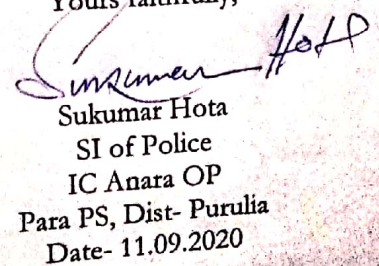 Yours faithfully,
Sukumar Hota
Sukumar Hota
SI of Police
IC Anara OP
Para PS, Dist- Purulia
Date- 11.09.2020